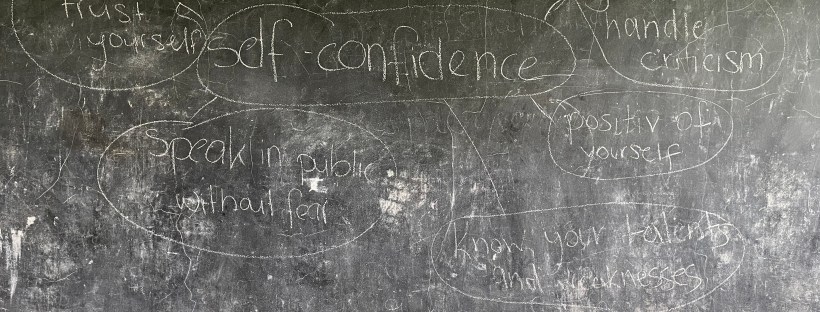 trust
yourself
Self-confidence
handle
criticism
positiv of
yourself
Speak in public
without fear
know your talents
and weaknesses